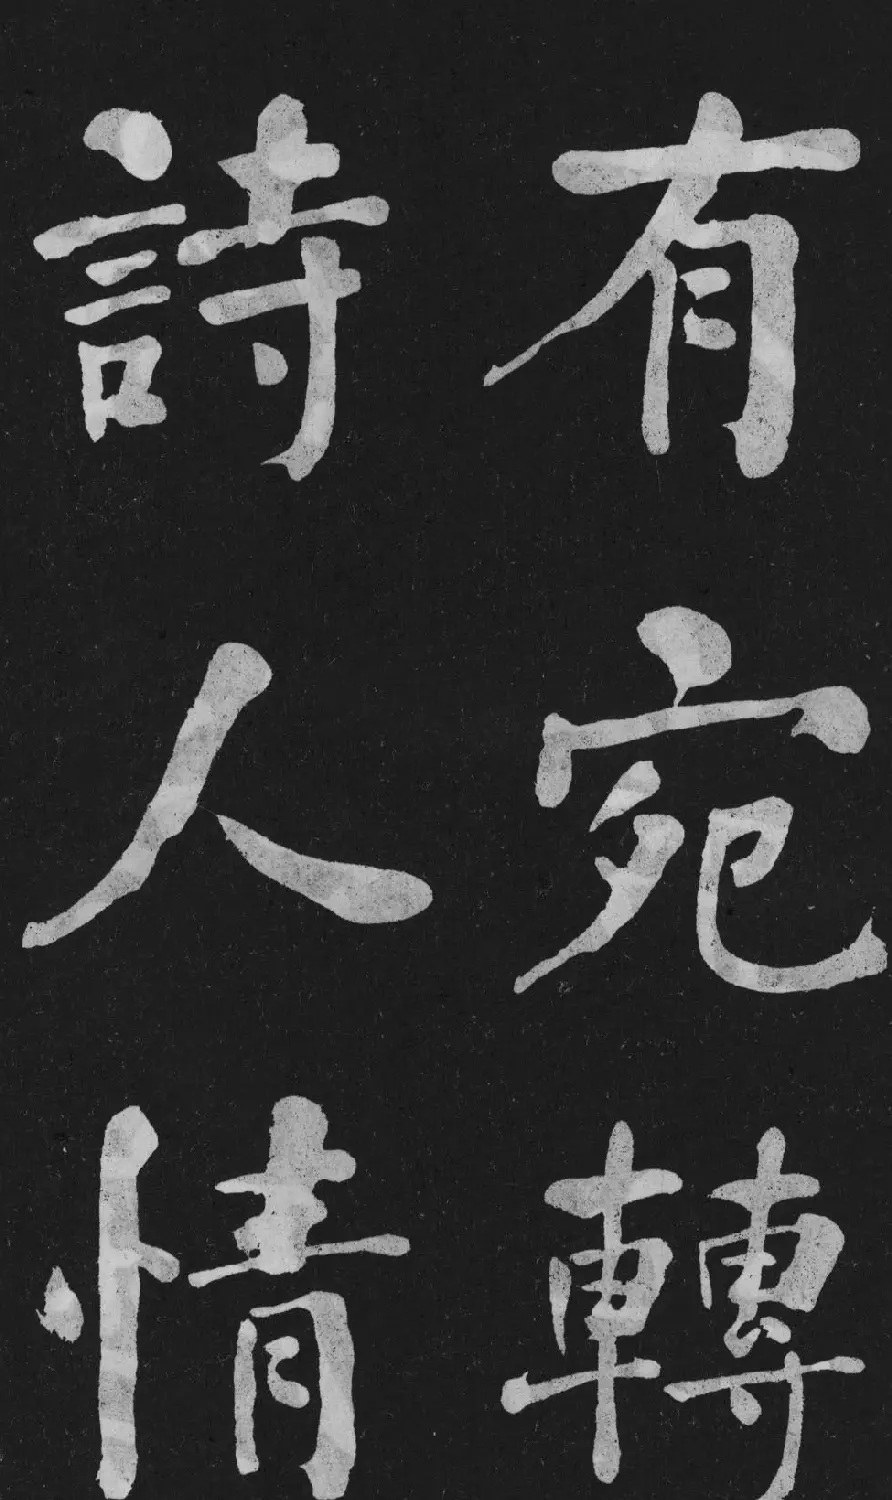 有宛轉
詩人情